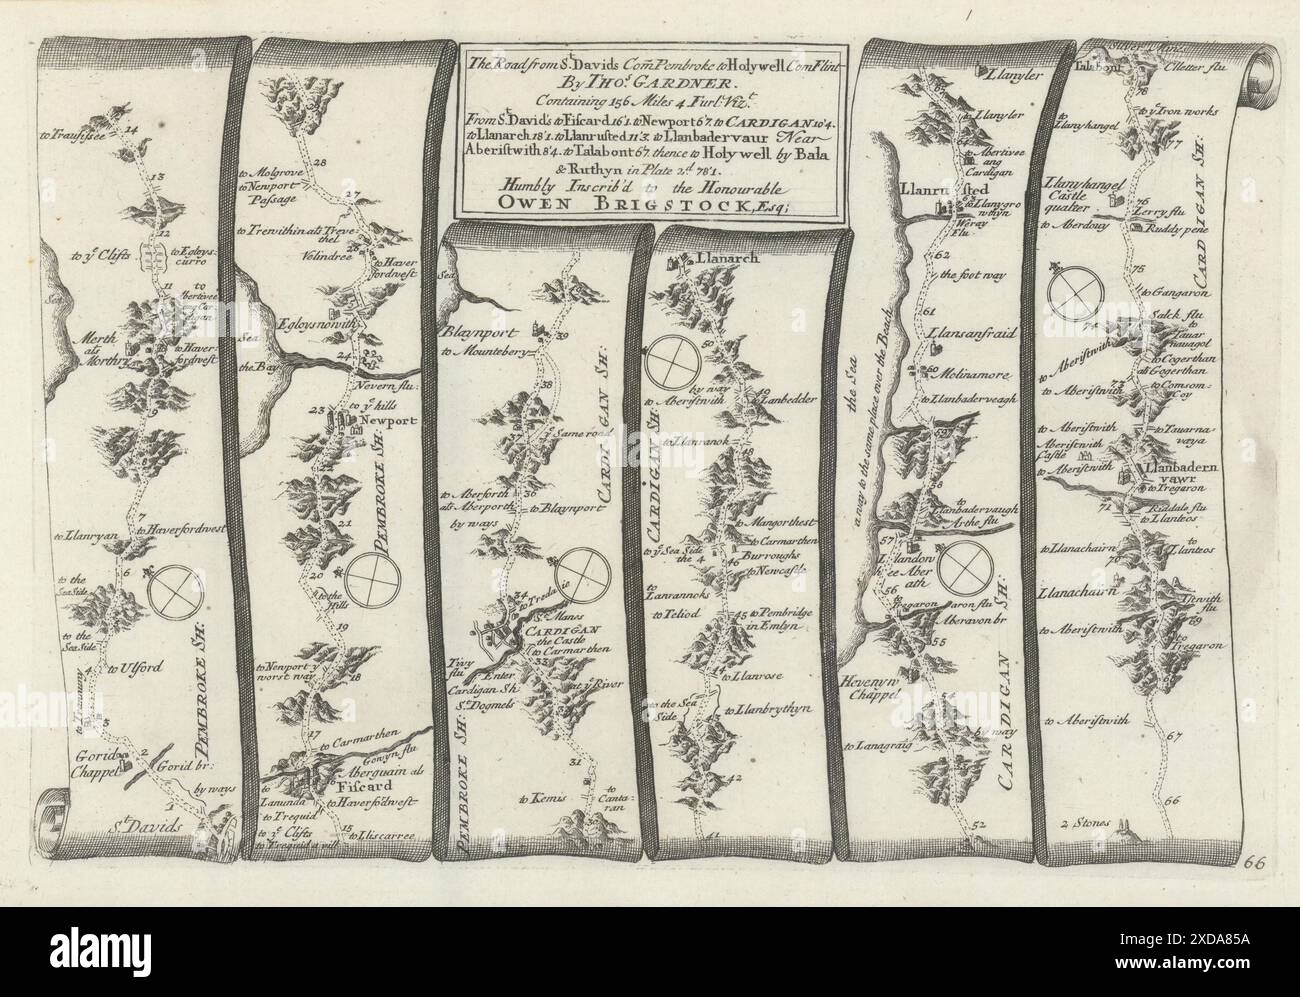 The Road from St. Davids Com Pembroke to Holywell Com Flint
By THOs. GARDNER.
Containing 156 Miles 4 Furl. Vizt.
From St. David's to Fiscard 16'1. to Newport 6'7. to CARDIGAN 10'4.
to Llanarch 18'1. to Llanrusted 11'3. to Llanbadervaur Near
Aberistwith 8'4. to Talabont 6'7. thence to Holywell by Bala
& Ruthyn in Plate 2d. 78'1.
Humbly Inscrib'd to the Honourable
OWEN BRIGSTOCK, Esq;
14
13
to ye Clifts
12
11
Sea
Merth
als
Morthry
9
8
7
to Llanryan
to Haverfordwest
6
to the
Sea Side
to the
Sea Side
4
to Ulford
3
PEMBROKE SH:
Gorid
Chappel
2
Gorid br:
by ways
1
St. Davids
28
to Molgrove
to Newport
Passage
27
Velindree
to Haver
fordwest
Sea
Egloysnowith
the Bay
24
Nevern flu:
to ye hills
23
Newport
22
PEMBROKE SH:
21
20
to the
Hills
19
to Newport ye
worst way
18
17
to Carmarthen
Gowyn flu
Aberguain als
Fiscard
to
Lanunda
to Haverfordwest
to Trequid
to ye Clifts
15
to Lliscarree
to Trequid a vill
Sea
Blaynport
39
to Mountebery
38
CARDIGAN SH:
ye Same road
to Aberforth
als Aberporth
36
to Blaynport
by ways
34
St. Manes
CARDIGAN
the Castle
to Carmarthen
33
Tivy
flu
Enter
Cardigan Sh:
St. Dogmels
PEMBROKE SH:
31
to Kemis
to
Canta:
ran
Llanarch
50
by way
to Aberistwith
49
Lanbedder
CARDIGAN SH:
to Llanranok
to Mangorthest
to Carmarthen
to ye Sea Side
the 4
Burroughs
46
to Newcastle
to
Lanrannoks
to Teliod
45
to Pembridge
in Emlyn
to Llanrose
to the Sea
Side
to Llanbrythyn
42
41
Llanyler
to Llanyler
64
to Abertivee
ang
Cardigan
Llanrusted
to Llangro
wthyn
Weray
Flu
62
the foot way
61
the Sea
a way to the same place over the Beach
Llansanfraid
60
Molinamore
to Llanbaderveagh
59
58
to
Llanbadervaugh
Arthe flu
57
56
Aberavon br
55
Hevenyn
Chappel
54
by way
to Lanagraig
CARDIGAN SH:
52
Talabont
Clletter flu
78
to ye Iron works
to
Llanyhangel
77
CARDIGAN SH:
Llanyhangel
Castle
qualter
76
Lerry flu
to Aberdouy
Ruddy pene
75
to Gangaron
Salck flu
to
Tauar
nauagol
74
to Aberistwith
to Cogerthan
als Gogerthan
to Aberistwith
73
to Comsom:
Coy
to Aberistwith
to Tauarna
vaya
Aberistwith
Castle
to Aberistwith
Llanbadern
vawr
to Tregaron
71
Riddale flu
to Llanteos
to Llanachairn
to
Llanteos
70
Llanachairn
Istwith
flu
69
to Aberistwith
to
Tregaron
to Aberistwith
67
66
2 Stones
66
alamy
Image ID: 2XDA85A
www.alamy.com